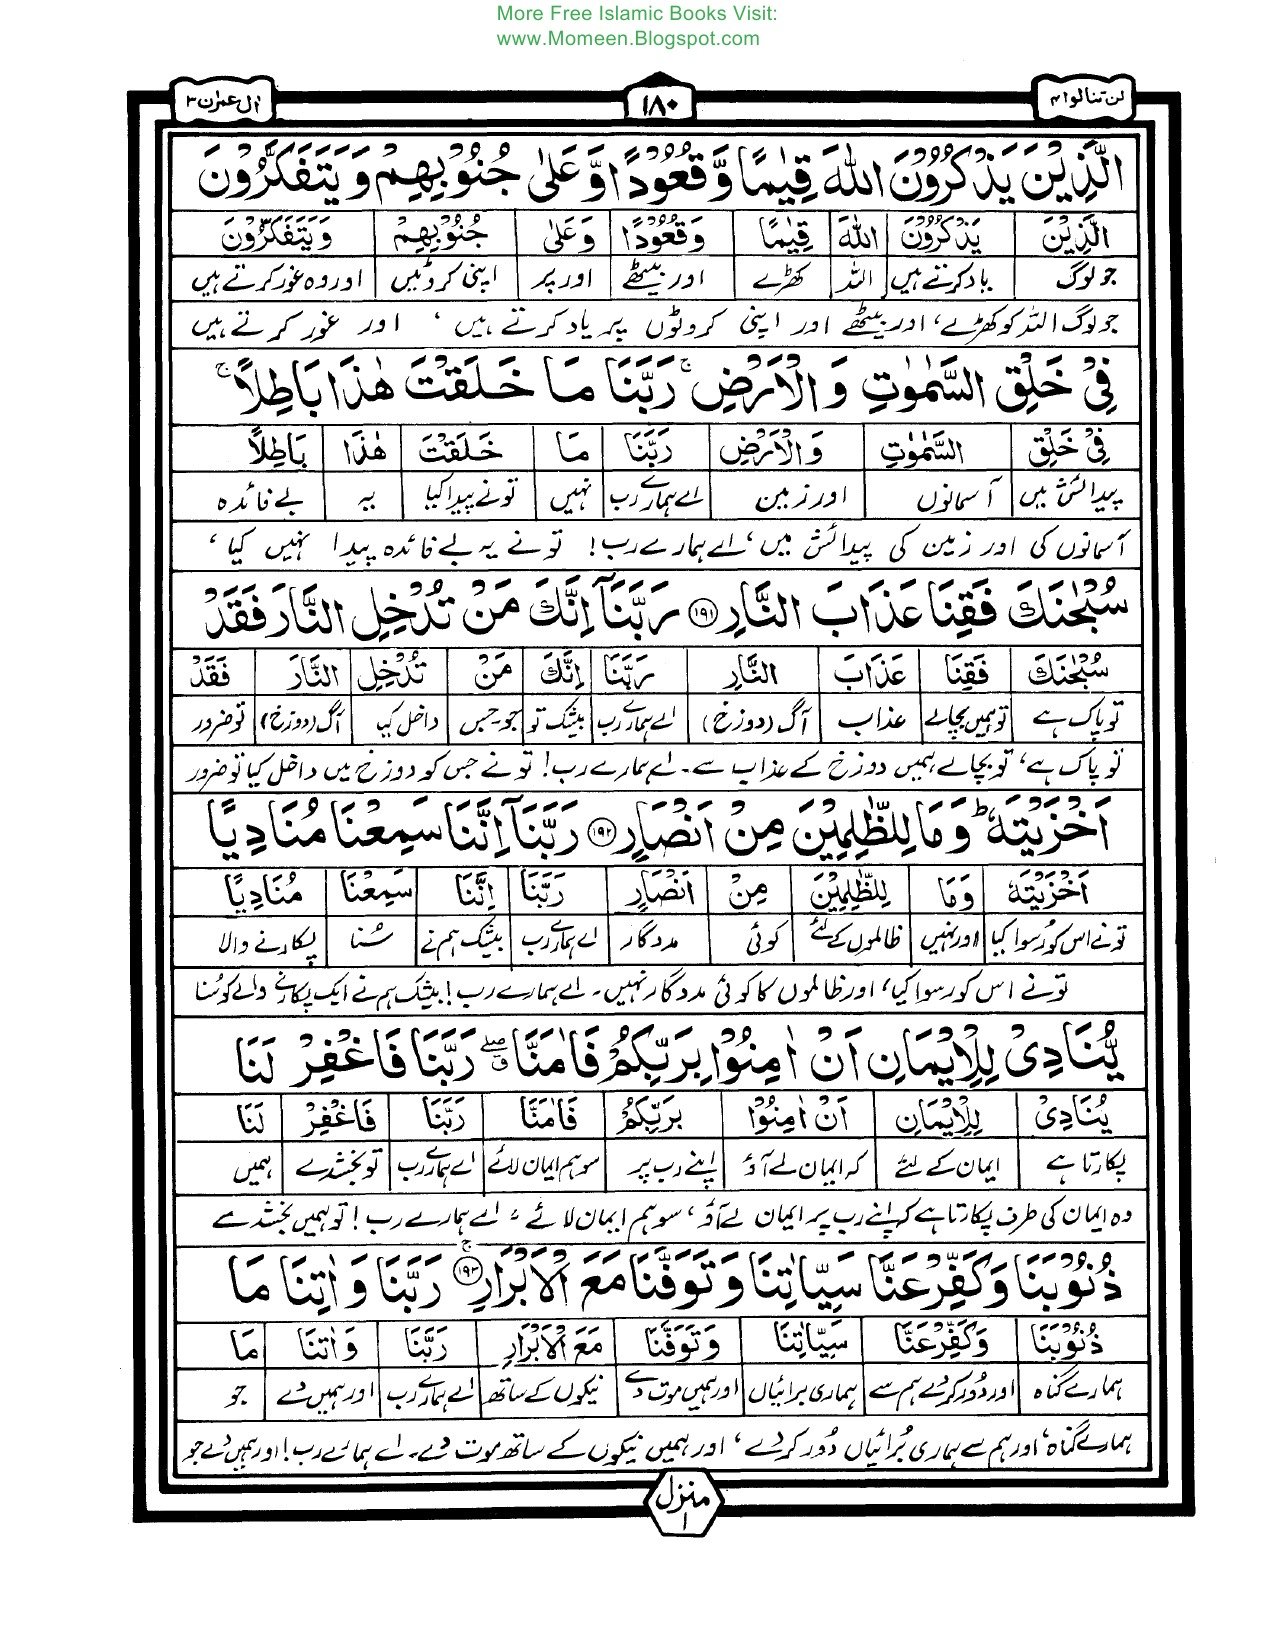 More Free Islamic Books Visit:
www.Momeen.Blogspot.com
لن تنالوا ۴
۱۸۰
اٰل عمرٰن ۳
الَّذِیْنَ یَذْكُرُوْنَ اللّٰهَ قِیٰمًا وَّقُعُوْدًا وَّعَلٰى جُنُوْبِهِمْ وَیَتَفَكَّرُوْنَ
الَّذِیْنَ یَذْكُرُوْنَ اللّٰهَ قِیٰمًا وَقُعُوْدًا وَعَلٰى جُنُوْبِهِمْ وَیَتَفَكَّرُوْنَ
جو لوگ یاد کرتے ہیں اللہ کھڑے اور بیٹھے اور پر اپنی کروٹیں اور وہ غور کرتے ہیں
جو لوگ اللہ کو کھڑے، اور بیٹھے اور اپنی کروٹوں پر یاد کرتے ہیں ، اور غور کرتے ہیں
فِیْ خَلْقِ السَّمٰوٰتِ وَالْاَرْضِ ۚ رَبَّنَا مَا خَلَقْتَ هٰذَا بَاطِلًا ۚ
فِیْ خَلْقِ السَّمٰوٰتِ وَالْاَرْضِ رَبَّنَا مَا خَلَقْتَ هٰذَا بَاطِلًا
پیدائش میں آسمانوں اور زمین اے ہمارے رب نہیں تونے پیدا کیا یہ بے فائدہ
آسمانوں کی اور زمین کی پیدائش میں، اے ہمارے رب! تو نے یہ بے فائدہ پیدا نہیں کیا ،
سُبْحٰنَكَ فَقِنَا عَذَابَ النَّارِ ﴿۱۹۱﴾ رَبَّنَاۤ اِنَّكَ مَنْ تُدْخِلِ النَّارَ فَقَدْ
سُبْحٰنَكَ فَقِنَا عَذَابَ النَّارِ رَبَّنَا اِنَّكَ مَنْ تُدْخِلِ النَّارَ فَقَدْ
تو پاک ہے تو ہمیں بچالے عذاب آگ (دوزخ) اے ہمارے رب بیشک تو جو۔جس داخل کیا آگ (دوزخ) تو ضرور
تو پاک ہے، تو بچالے ہمیں دوزخ کے عذاب سے۔ اے ہمارے رب! تو نے جس کو دوزخ میں داخل کیا تو ضرور
اَخْزَیْتَهٗ ؕ وَمَا لِلظّٰلِمِیْنَ مِنْ اَنْصَارٍ ﴿۱۹۲﴾ رَبَّنَاۤ اِنَّنَا سَمِعْنَا مُنَادِیًا
اَخْزَیْتَهٗ وَمَا لِلظّٰلِمِیْنَ مِنْ اَنْصَارٍ رَبَّنَا اِنَّنَا سَمِعْنَا مُنَادِیًا
تو نے اس کو رسوا کیا اور نہیں ظالموں کے لئے کوئی مددگار اے ہمارے رب بیشک ہم نے سُنا پکارنے والا
تو نے اس کو رسوا کیا، اور ظالموں کا کوئی مددگار نہیں۔ اے ہمارے رب! بیشک ہم نے ایک پکارنے والے کو سُنا
یُّنَادِیْ لِلْاِیْمَانِ اَنْ اٰمِنُوْا بِرَبِّكُمْ فَاٰمَنَّا ۖ ق رَبَّنَا فَاغْفِرْ لَنَا
یُنَادِیْ لِلْاِیْمَانِ اَنْ اٰمِنُوْا بِرَبِّكُمْ فَاٰمَنَّا رَبَّنَا فَاغْفِرْ لَنَا
پکارتا ہے ایمان کے لئے کہ ایمان لے آؤ اپنے رب پر سو ہم ایمان لائے اے ہمارے رب تو بخشدے ہمیں
وہ ایمان کی طرف پکارتا ہے کہ اپنے رب پر ایمان لے آؤ، سو ہم ایمان لائے ، اے ہمارے رب! تو ہمیں بخشدے
ذُنُوْبَنَا وَكَفِّرْ عَنَّا سَیِّاٰتِنَا وَتَوَفَّنَا مَعَ الْاَبْرَارِ ۚ ﴿۱۹۳﴾ رَبَّنَا وَاٰتِنَا مَا
ذُنُوْبَنَا وَكَفِّرْ عَنَّا سَیِّاٰتِنَا وَتَوَفَّنَا مَعَ الْاَبْرَارِ رَبَّنَا وَاٰتِنَا مَا
ہمارے گناہ اور دُور کردے ہم سے ہماری برائیاں اور ہمیں موت دے نیکوں کے ساتھ اے ہمارے رب اور ہمیں دے جو
ہمارے گناہ، اور ہم سے ہماری بُرائیاں دُور کردے ، اور ہمیں نیکوں کے ساتھ موت دے۔ اے ہمارے رب! اور ہمیں دے جو
منزل
۱